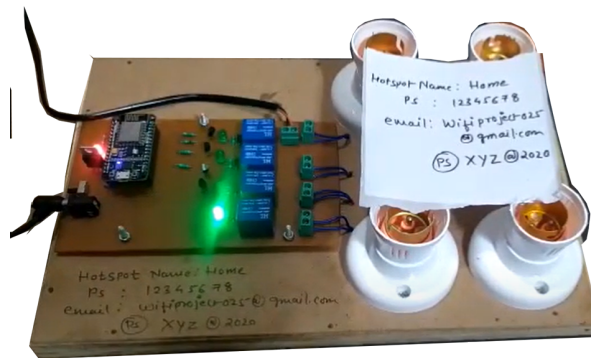 Hotspot Name: Home
Ps : 12345678
email: Wifiproject025
@gmail.com
(Ps) XYZ@2020
Hotspot Name: Home
Ps : 12345678
email: wifiproject025@gmail.com
(Ps) XYZ @ 2020